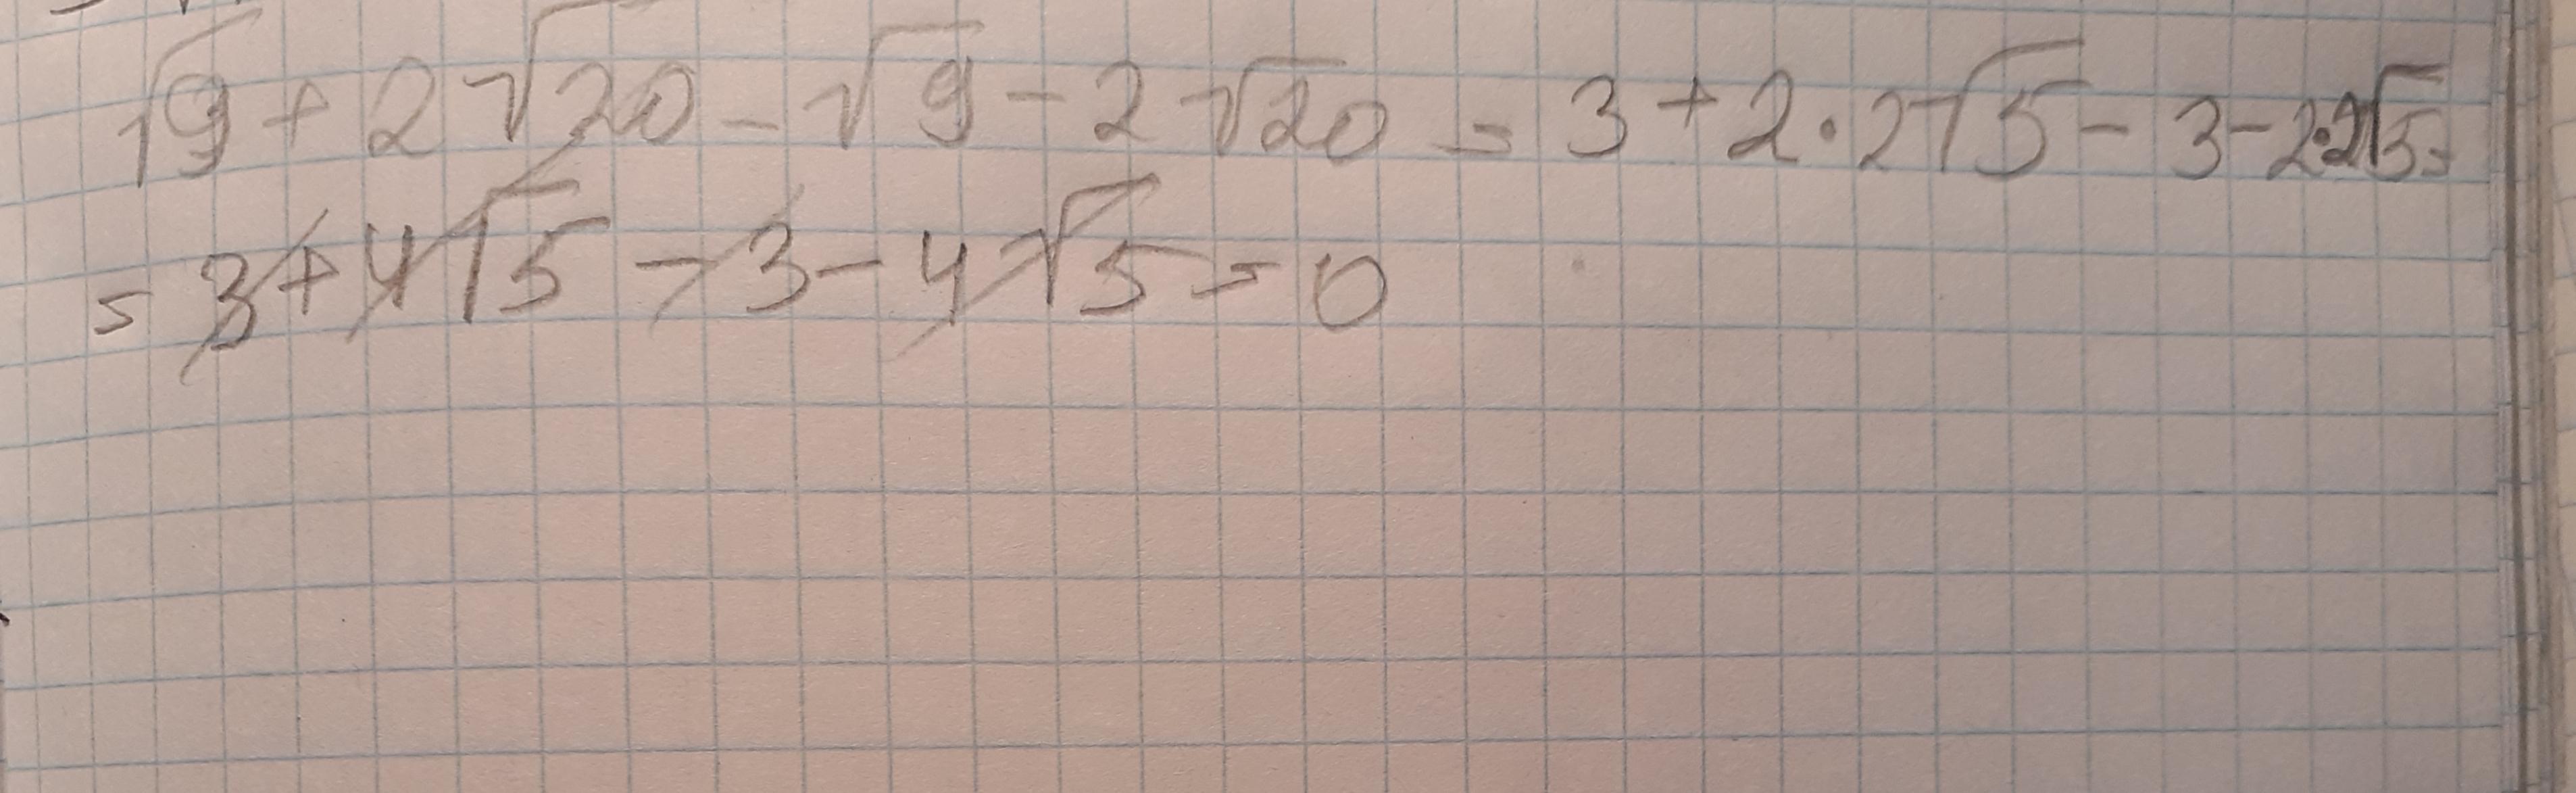 √9 + 2√20 - √9 - 2√20 = 3 + 2·2√5 - 3 - 2·2√5 =
= 3 + 4√5 - 3 - 4√5 = 0